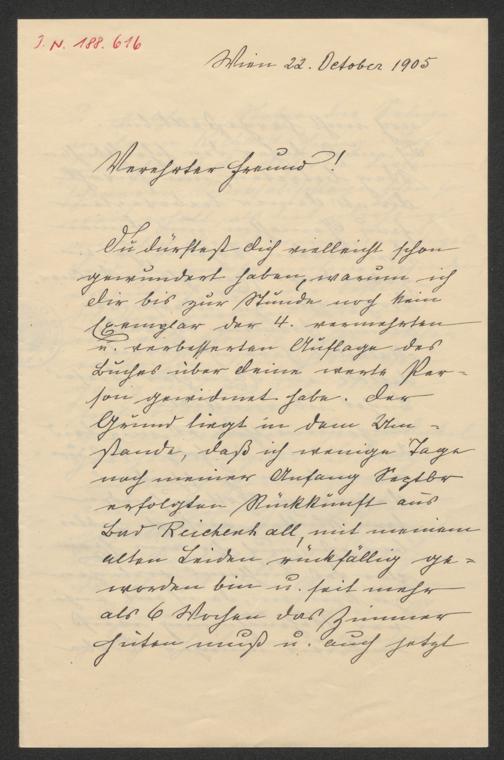 J. N. 188.616
Wien 22. October 1905
Verehrter Freund!
Du dürftest Dich vielleicht schon
gewundert haben, warum ich
Dir bis zur Stunde noch kein
Exemplar der 4. vermehrten
u. verbesserten Auflage des
Buches über Deine werte Per-
son gewidmet habe. Der
Grund liegt in dem Um-
stande, daß ich wenige Tage
nach meiner Anfang Septbr
erfolgten Rückkunft aus
Bad Reichenhall, mit meinem
alten Leiden rückfällig ge-
worden bin u. seit mehr
als 6 Wochen das Zimmer
hüten muß u. auch jetzt